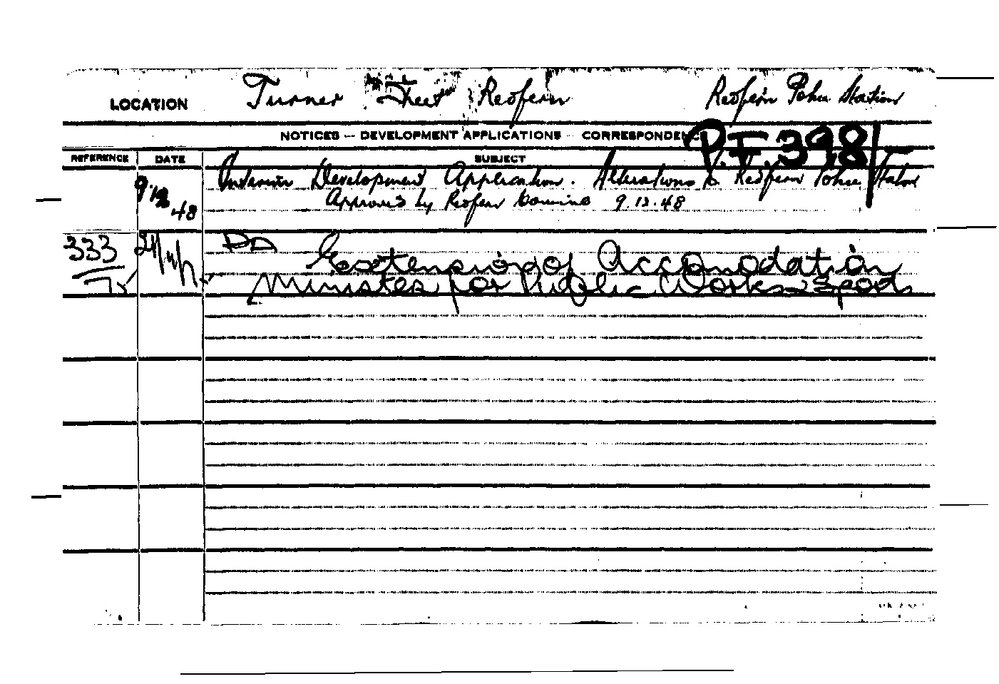 LOCATION Turner Street Redfern Redfern Police Station
NOTICES - DEVELOPMENT APPLICATIONS CORRESPONDENCE
P.F 398/-
REFERENCE DATE SUBJECT
9/12/48 Interim Development Application. Alterations to Redfern Police Station
Approved by Redfern Council 9.12.48
333 DA Exetension of Accomodation
Minister for Public Works & Sport